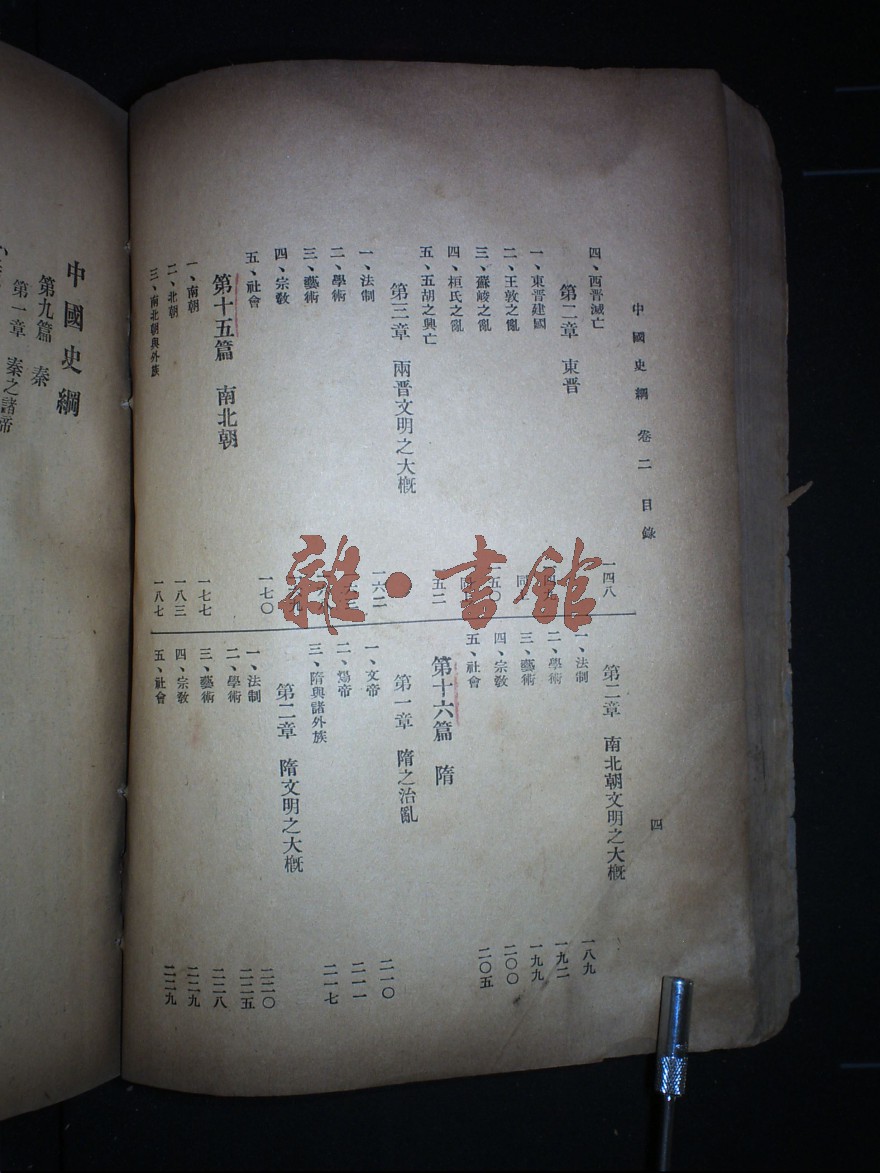 中國史綱 卷二 目錄 四
四、西晋滅亡 一四八
第二章 東晋
一、東晋建國
二、王敦之亂
三、蘇峻之亂 五〇
四、桓氏之亂
五、五胡之興亡 五二
第三章 兩晋文明之大槪
一、法制 一六二
二、學術
三、藝術
四、宗敎
五、社會 一七〇
第十五篇 南北朝
一、南朝 一七七
二、北朝 一八三
三、南北朝與外族 一八七
第二章 南北朝文明之大槪
一、法制 一八九
二、學術 一九二
三、藝術 一九九
四、宗敎 二〇〇
五、社會 二〇五
第十六篇 隋
第一章 隋之治亂
一、文帝 二一〇
二、煬帝 二一一
三、隋與諸外族 二一七
第二章 隋文明之大槪
一、法制 二二〇
二、學術 二二五
三、藝術 二二八
四、宗敎 二二九
五、社會 二二九
中國史綱
第九篇 秦
第一章 秦之諸帝
雜·書館